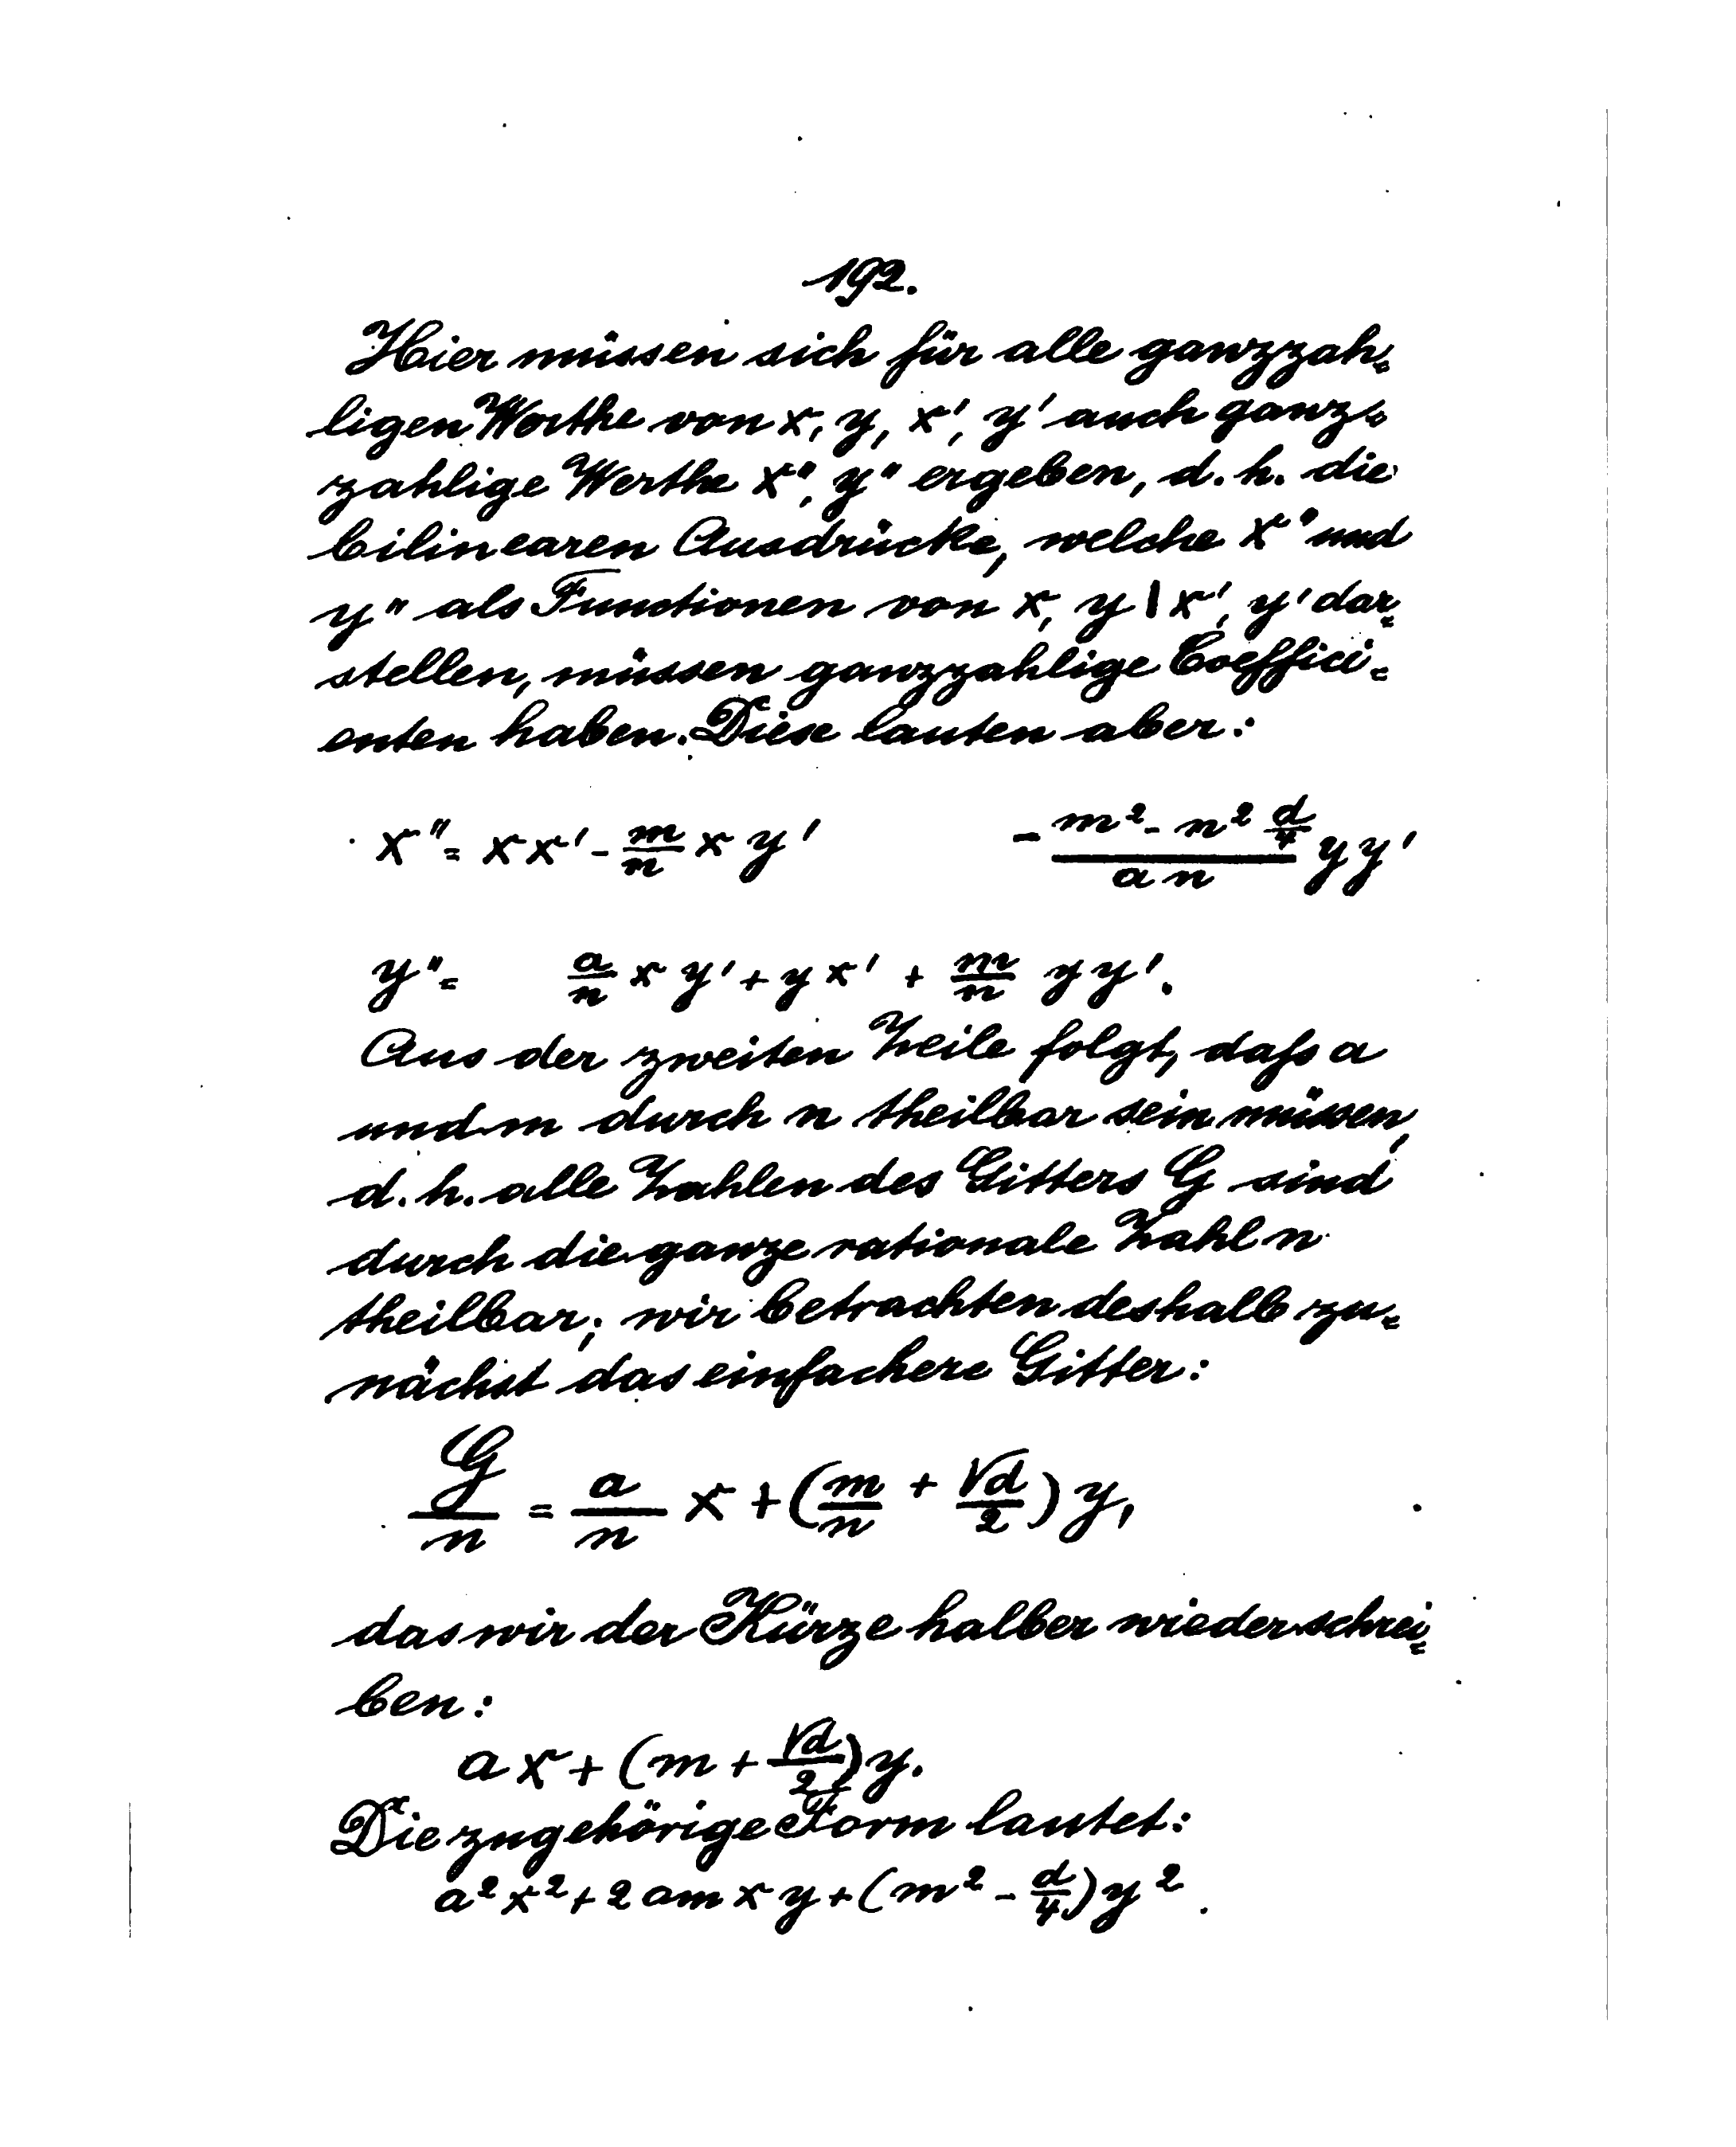 192.
Hier müssen sich für alle ganzzah=
ligen Werthe von x, y, x', y' auch ganz=
zahlige Werthe x", y" ergeben, d. h. die
bilinearen Ausdrücke, welche x" und
y" als Functionen von x, y | x', y' dar=
stellen, müssen ganzzahlige Coeffici=
enten haben. Diese lauten aber:
x" = xx' - \frac{m}{n} x y' - \frac{m² - n² \frac{d}{4}}{an} y y'
y" = \frac{a}{n} x y' + y x' + \frac{m}{n} y y'.
Aus der zweiten Zeile folgt, daſs a
und m durch n theilbar sein müssen,
d. h. alle Zahlen des Gitters G sind
durch die ganze rationale Zahl n
theilbar; wir betrachten deshalb zu=
nächst das einfachere Gitter:
\frac{G}{n} = \frac{a}{n} x + (\frac{m}{n} + \frac{√d}{2}) y,
das wir der Kürze halber wieder schrei=
ben:
a x + (m + \frac{√d}{2}) y.
Die zugehörige Form lautet:
a² x² + 2 am x y + (m² - \frac{d}{4}) y².